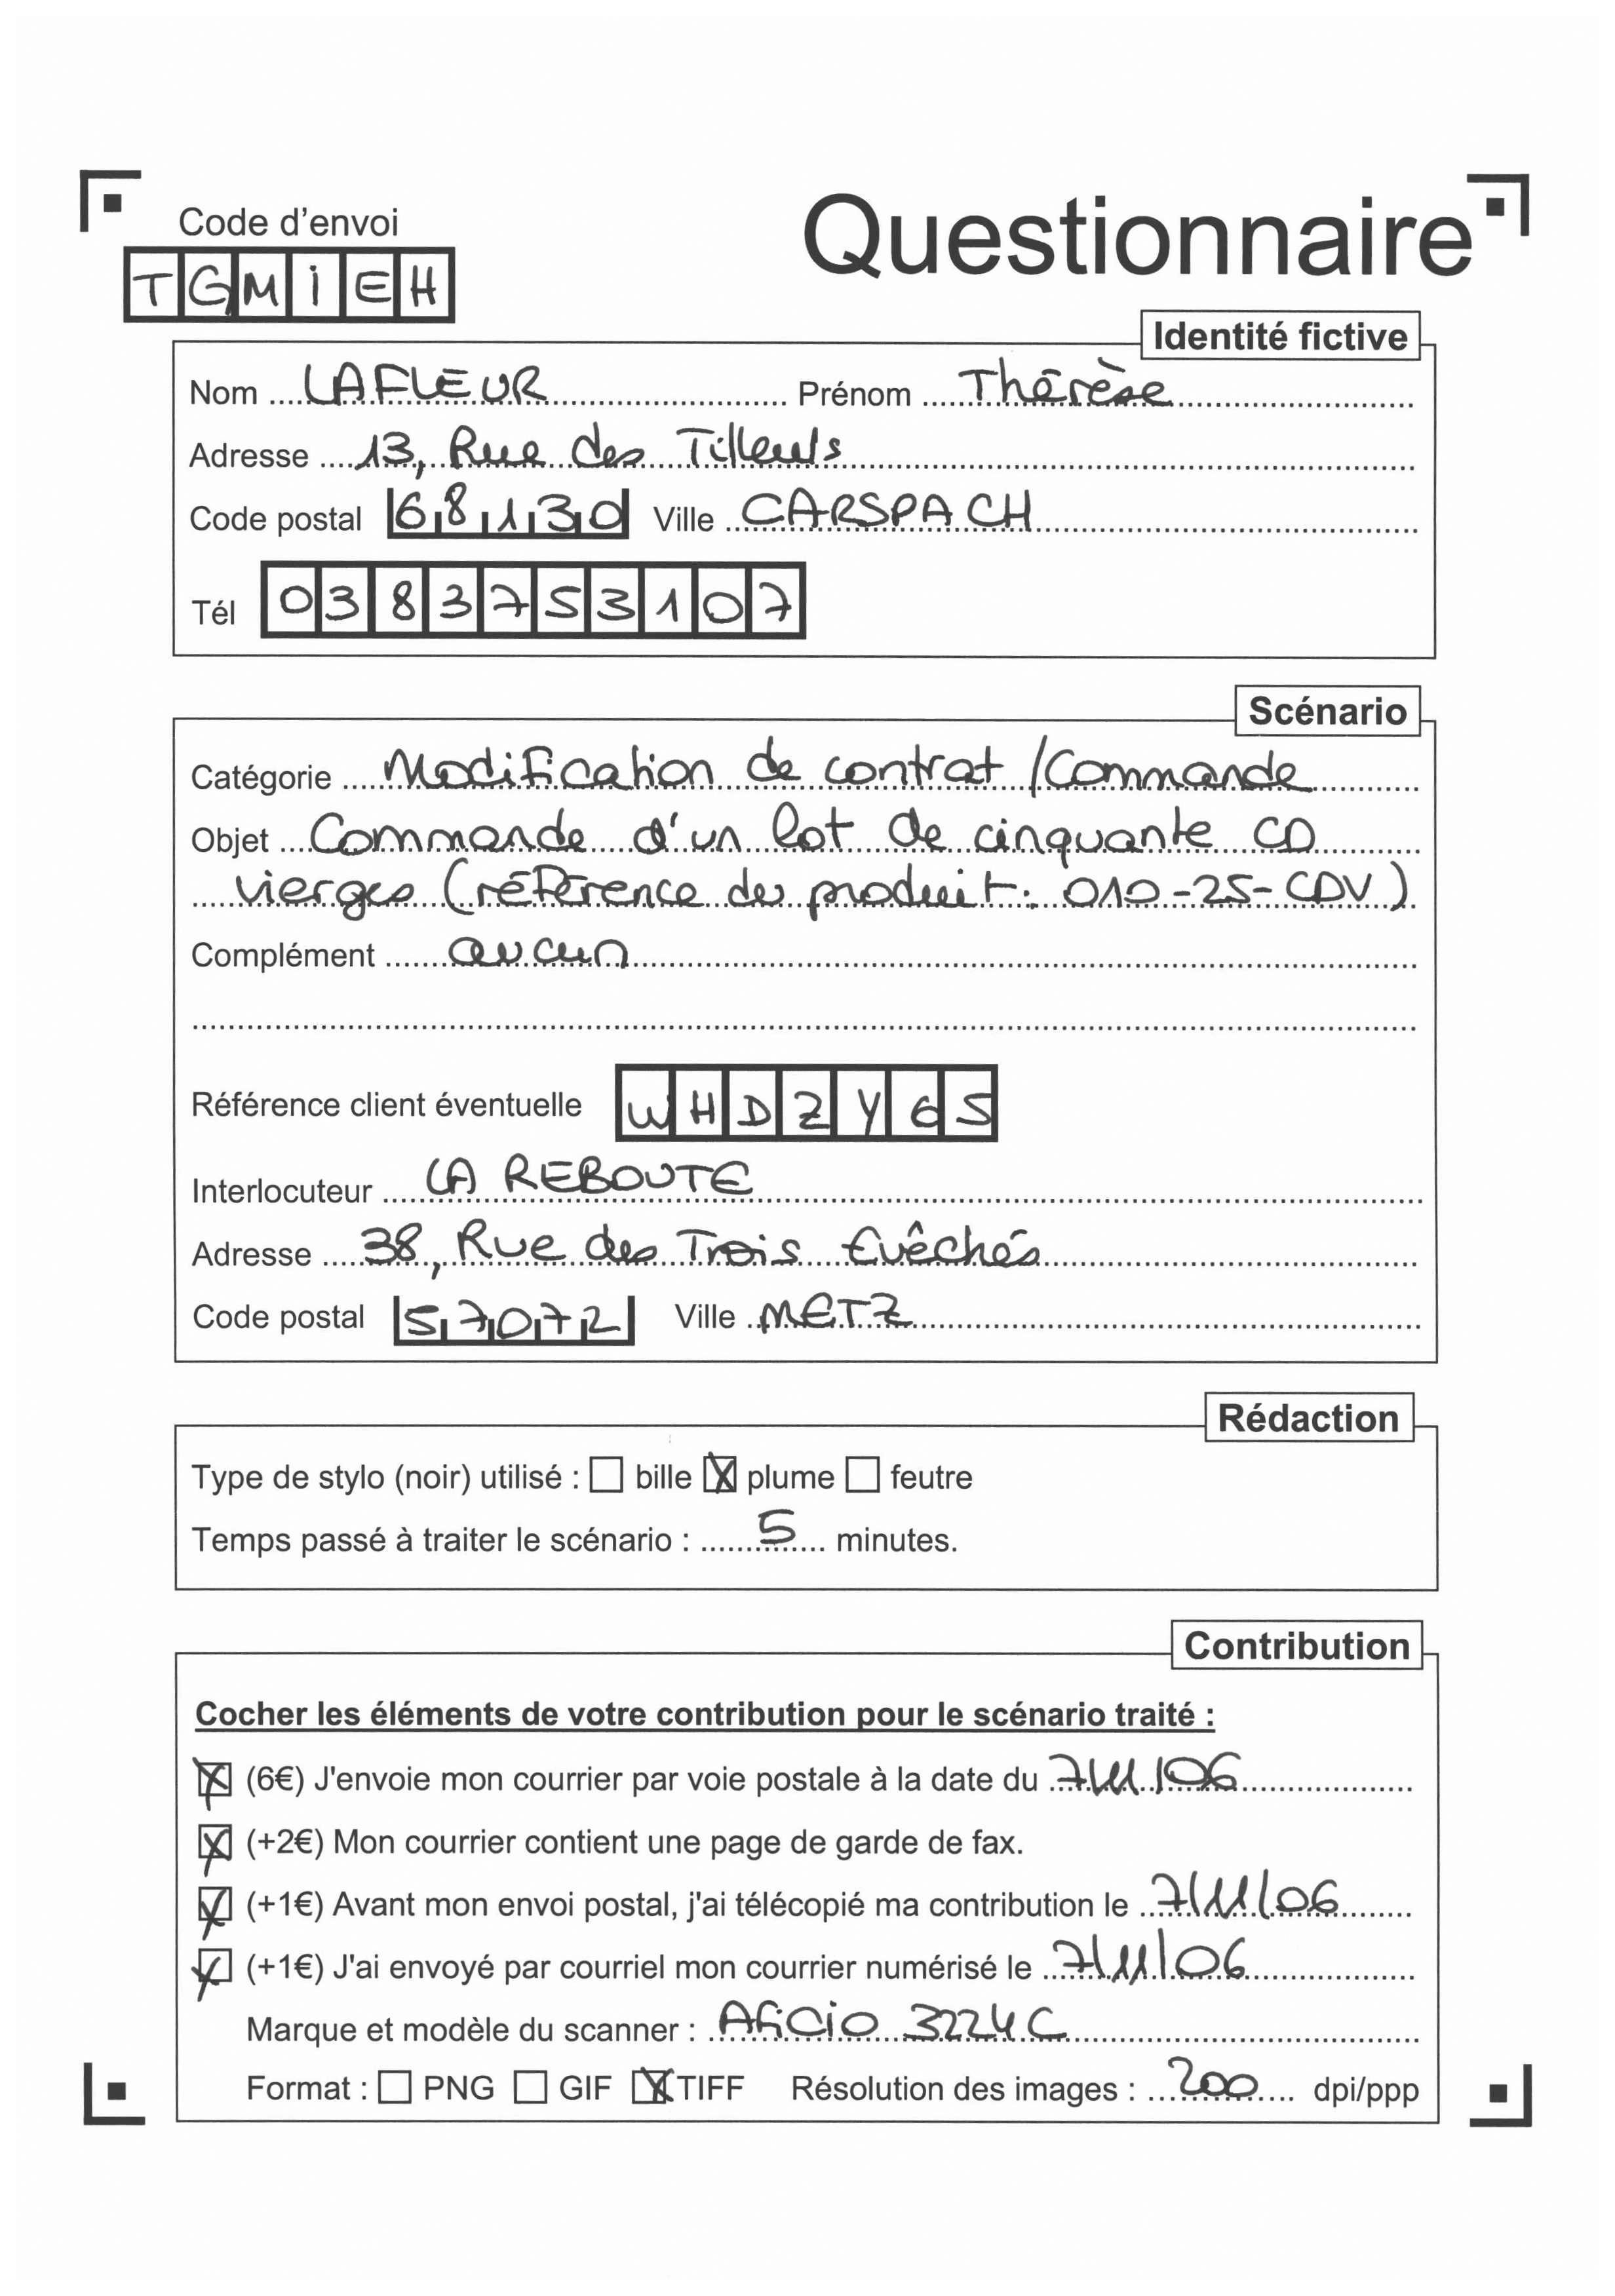 Code d'envoi
Questionnaire
TGMIEH
Identité fictive
Nom LAFLEUR Prénom Thérèse
Adresse 13, Rue des Tilleuls
Code postal 68130 Ville CARSPACH
Tél 0383753107
Scénario
Catégorie Modification de contrat / Commande
Objet Commande d'un lot de cinquante CD
vierges (référence du produit : 010-25-CDV)
Complément aucun
Référence client éventuelle WHDZY65
Interlocuteur LA REBOUTE
Adresse 38, Rue des Trois Evêchés
Code postal 57072 Ville METZ
Rédaction
Type de stylo (noir) utilisé : ☐ bille ☒ plume ☐ feutre
Temps passé à traiter le scénario : 5 minutes.
Contribution
Cocher les éléments de votre contribution pour le scénario traité :
☒ (6€) J'envoie mon courrier par voie postale à la date du 7/11/06
☒ (+2€) Mon courrier contient une page de garde de fax.
☒ (+1€) Avant mon envoi postal, j'ai télécopié ma contribution le 7/11/06
☒ (+1€) J'ai envoyé par courriel mon courrier numérisé le 7/11/06
Marque et modèle du scanner : Aficio 3224C
Format : ☐ PNG ☐ GIF ☒ TIFF Résolution des images : 200 dpi/ppp